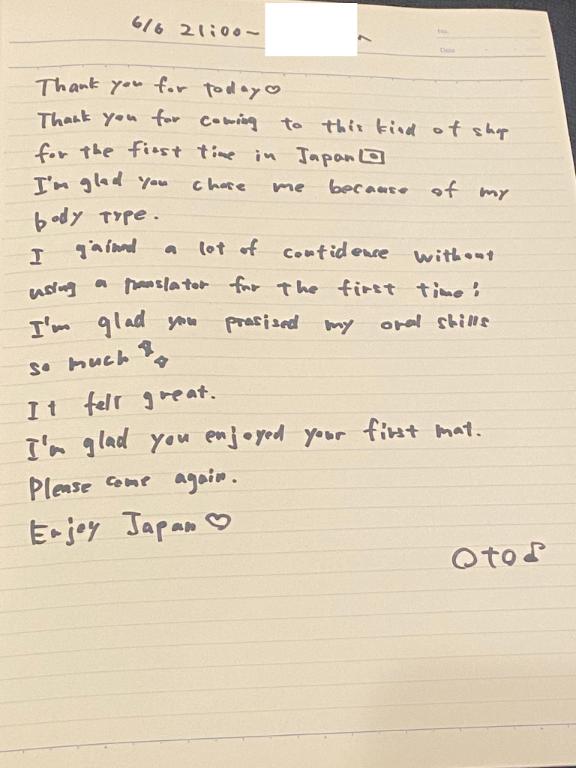 6/6 21:00~
Thank you for today♡
Thank you for coming to this kind of shop
for the first time in Japan🇯🇵
I'm glad you chose me because of my
body type.
I gained a lot of confidence without
using a translator for the first time!
I'm glad you prasised my oral skills
so much
It felt great.
I'm glad you enjoyed your first mat.
Please come again.
Enjoy Japan♡
Oto♪
No.
Date